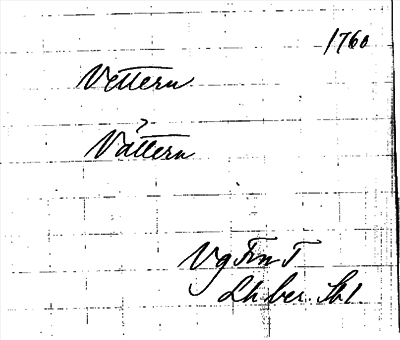 1760
Vettern
Vättern
Vg Frn T
Lh ber. Sk 1.